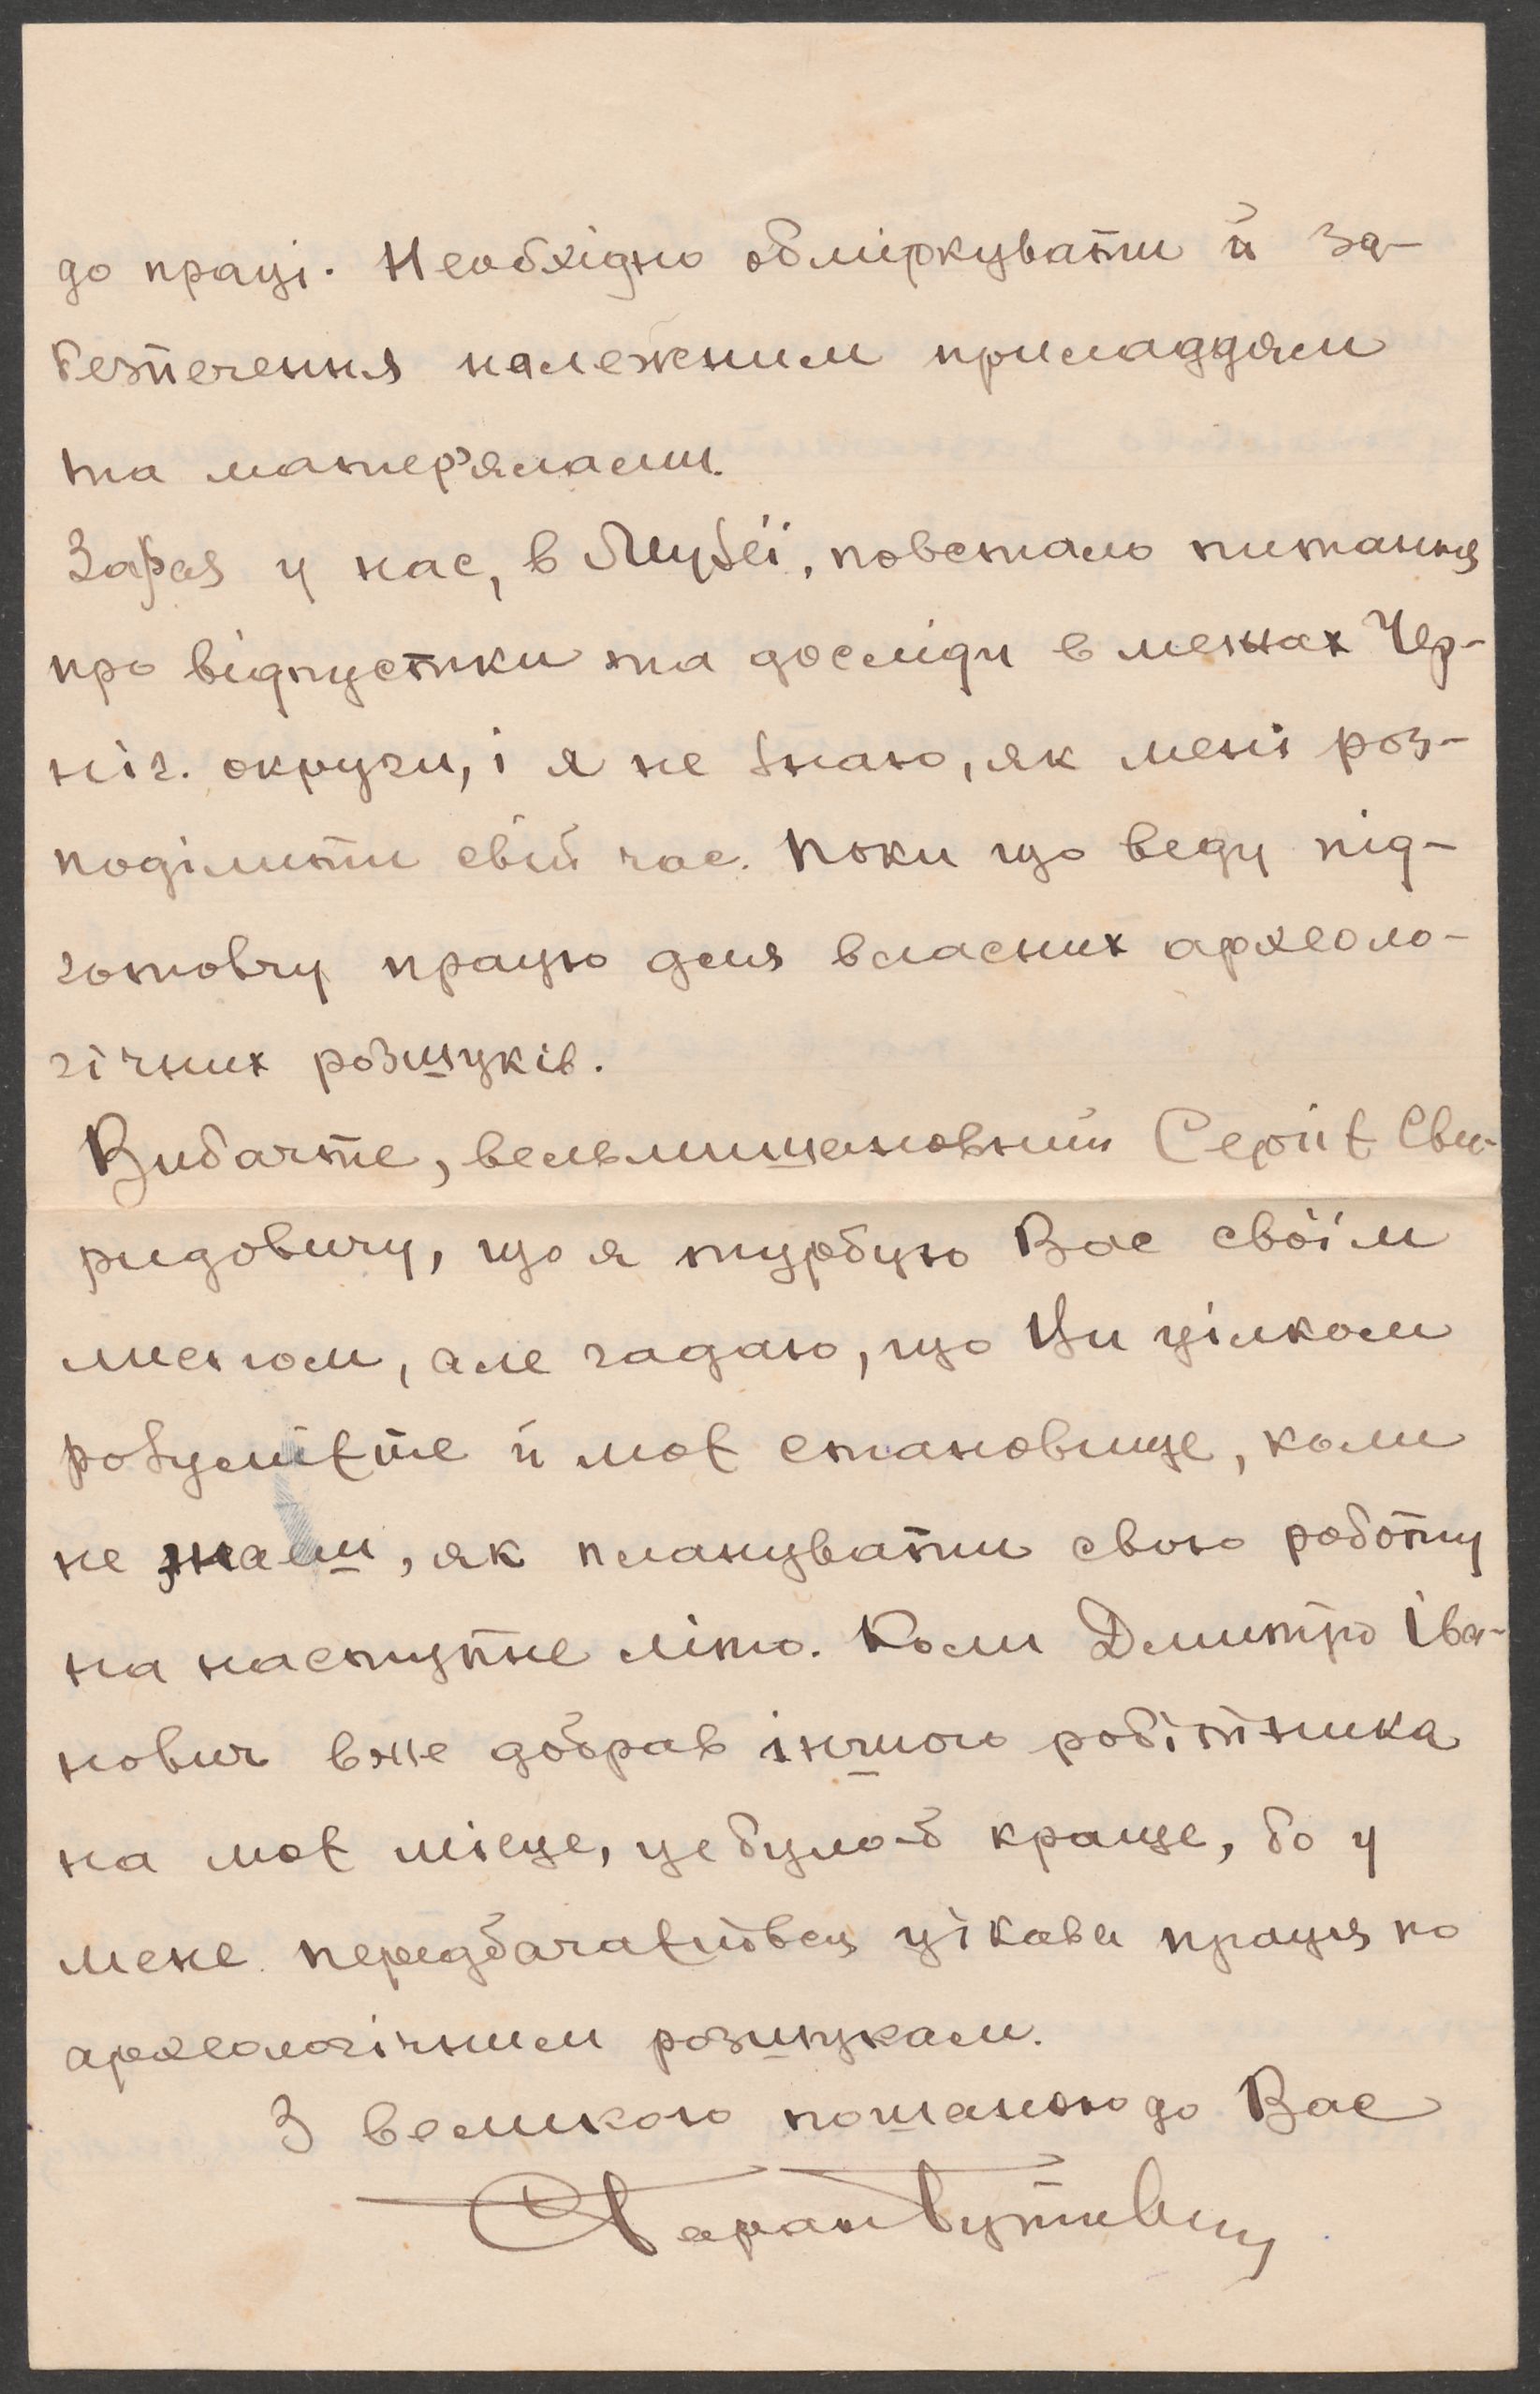 до праці. Необхідно обміркувати й за-
безпечення належним приладдям
та матер'ялами.
Зараз у нас, в Музеї, повстало питання
про відпустки та досліди в межах Чер-
ніг. округи, і я не знаю, як мені роз-
поділити свій час. Поки що веду під-
готовчу працю для власних археоло-
гічних розшуків.
Вибачте, вельмишановний Сергіє Сви-
ридовичу, що я турбую Вас своїм
листом, але гадаю, що Ви цілком
розумієте й моє становище, коли
не знаєш, як планувати свою роботу
на наступне літо. Коли Дмитро Іва-
нович вже добрав іншого робітника
на моє місце, це було-б краще, бо у
мене передбачається цікава праця по
археологічним розшукам.
З великою пошаною до Вас